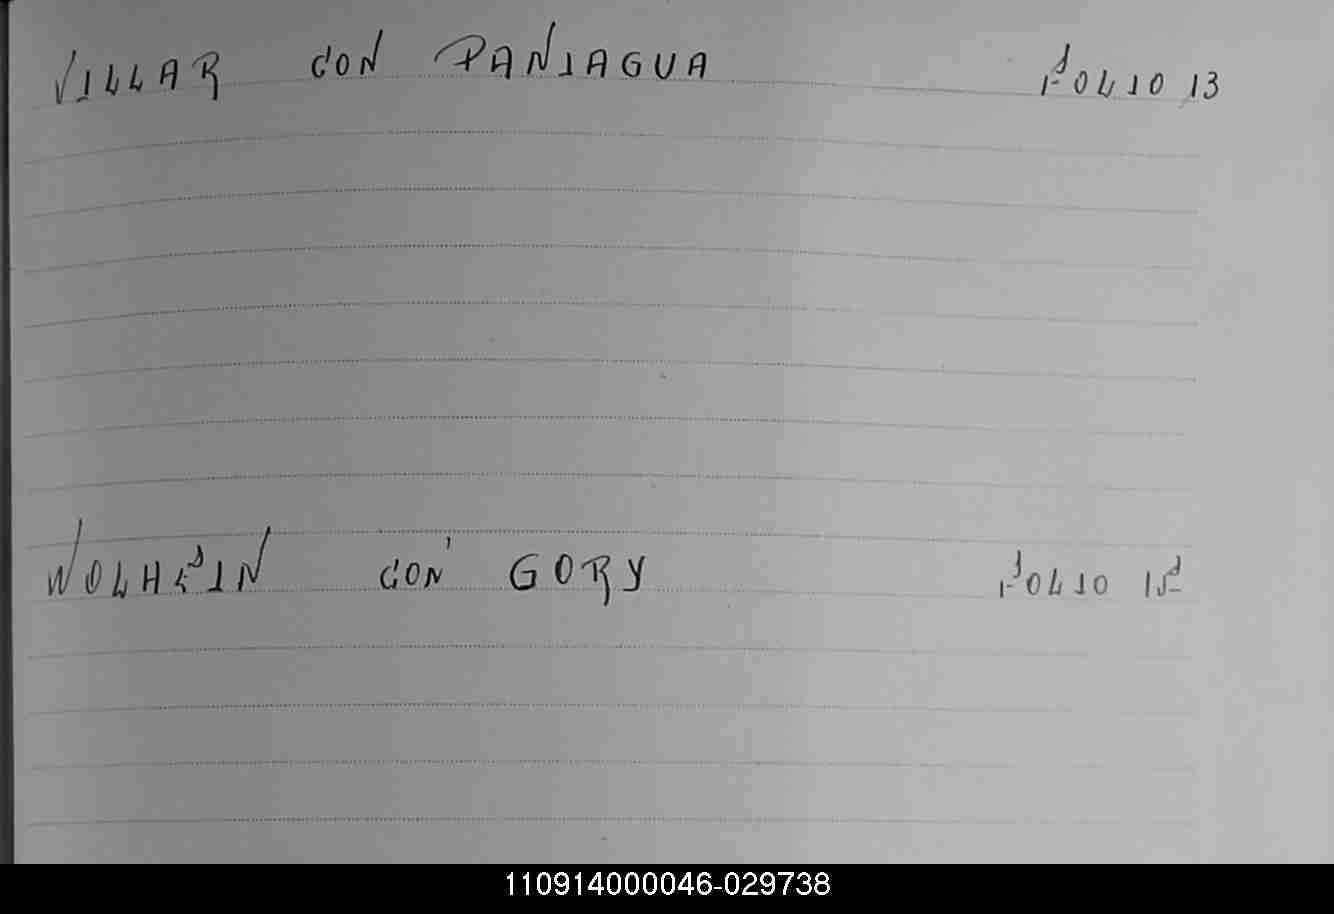 VILLAR CON PANIAGUA FOLIO 13
CON GORY FOLIO 15
110914000046-029738